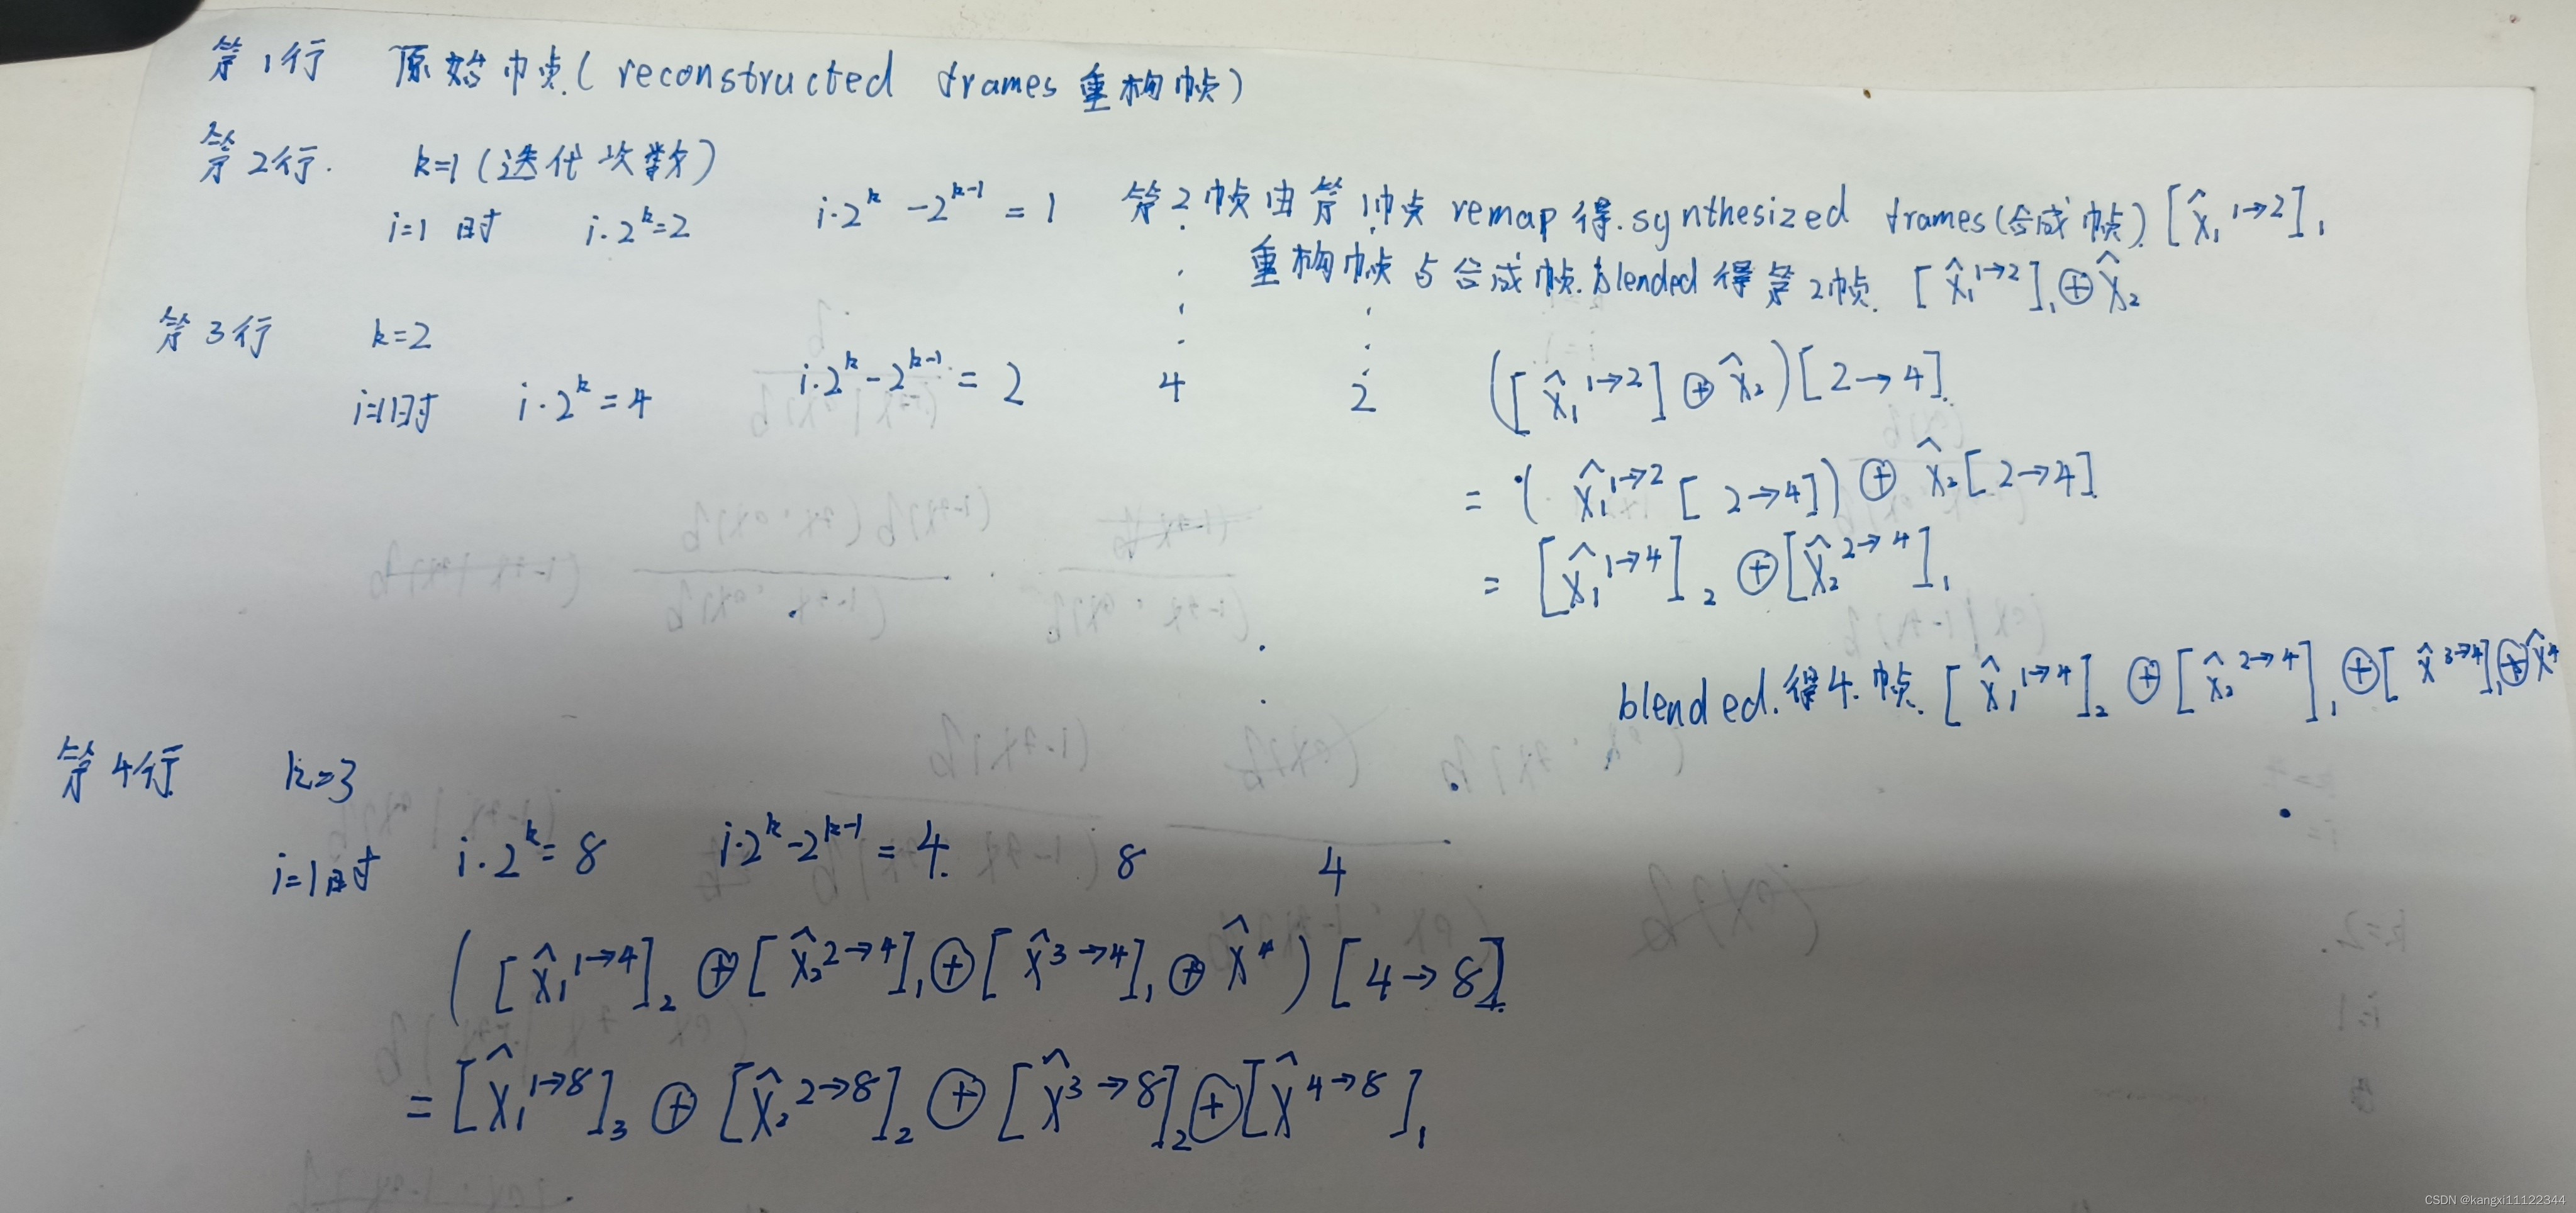 第1行 原始帧(reconstructed frames 重构帧)
第2行. k=1(迭代次数)
i=1时 i·2^k=2 i·2^k-2^{k-1}=1 第2帧由第1帧 remap 得.synthesized frames(合成帧) [x̂₁^{1→2}]₁
重构帧与合成帧.blended 得第2帧. [x̂₁^{1→2}]₁⊕x̂₂
第3行 k=2
i=1时 i·2^k=4 i·2^k-2^{k-1}=2 4 2 ([x̂₁^{1→2}]⊕x̂₂)[2→4]
=(x̂₁^{1→2}[2→4])⊕x̂₂[2→4]
=[x̂₁^{1→4}]₂⊕[x̂₂^{2→4}]₁
blended.得4.帧.[x̂₁^{1→4}]₂⊕[x̂₂^{2→4}]₁⊕[x̂^{3→4}]₁⊕x̂^4
第4行 k=3
i=1时 i·2^k=8 i·2^k-2^{k-1}=4. 8 4
([x̂₁^{1→4}]₂⊕[x̂₂^{2→4}]₁⊕[x̂^{3→4}]₁⊕x̂^4)[4→8]
=[x̂₁^{1→8}]₃⊕[x̂₂^{2→8}]₂⊕[x̂^{3→8}]₂⊕[x̂^{4→8}]₁
CSDN @kangxi11122344